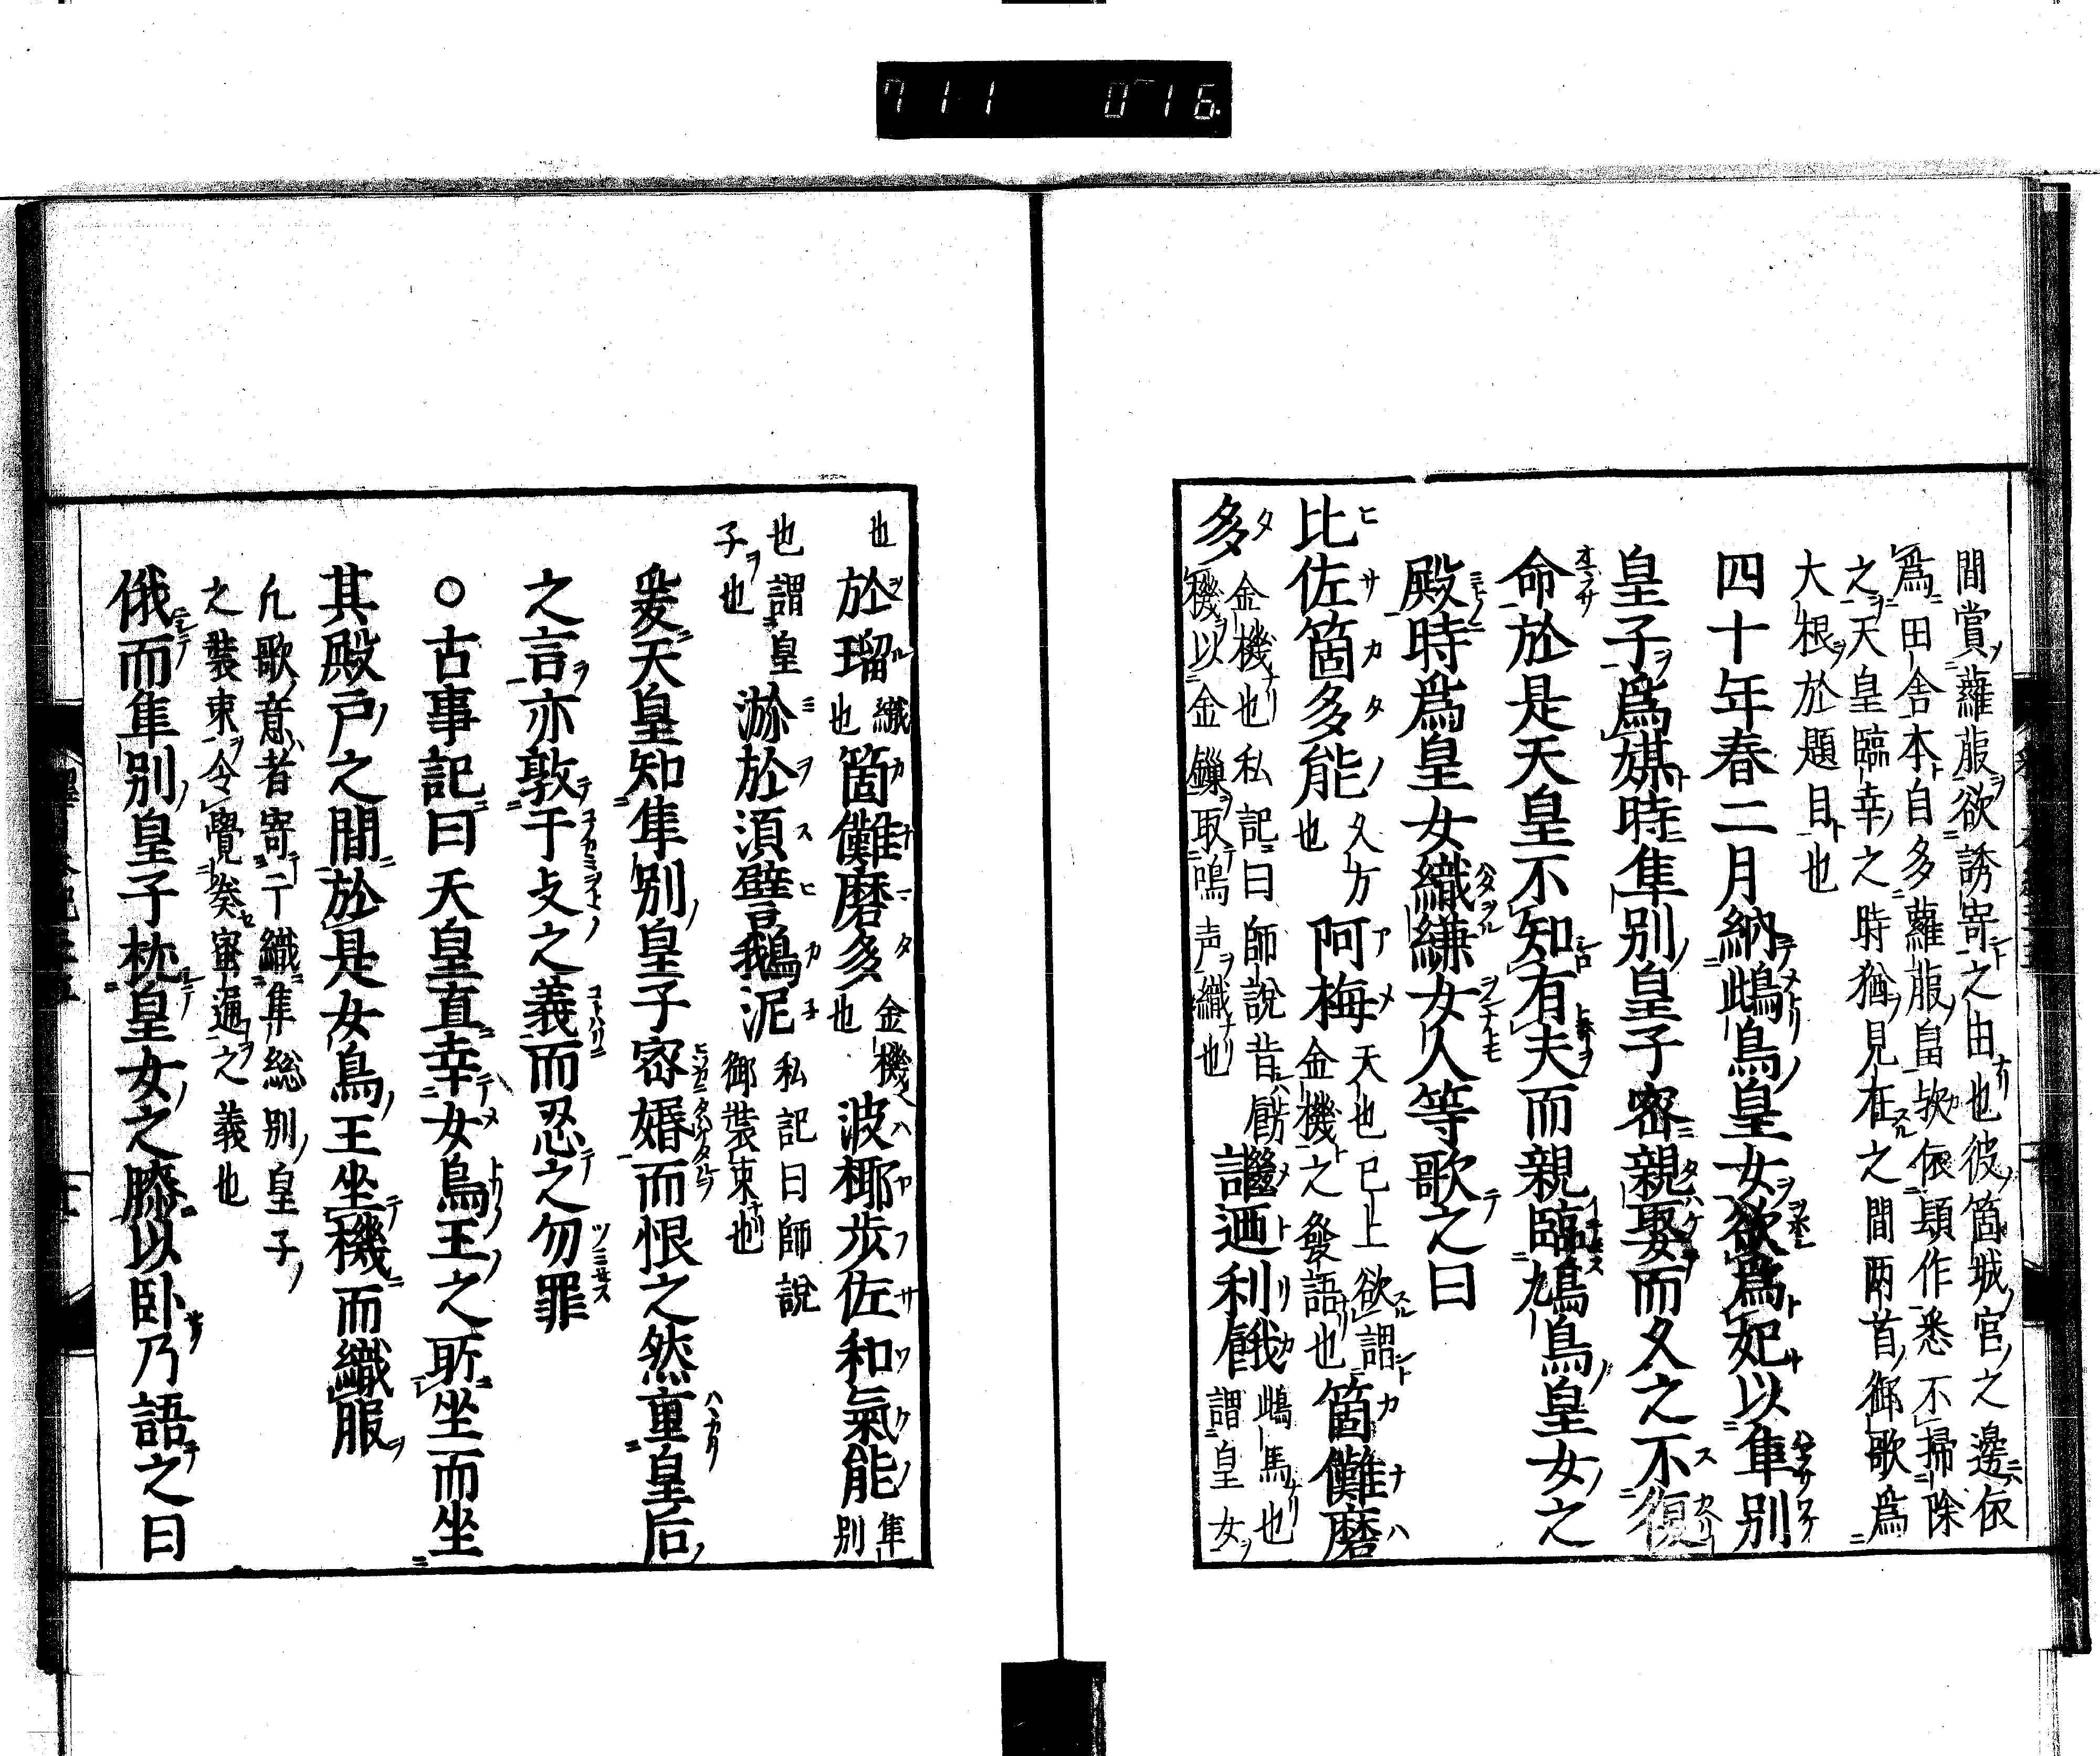 711 016
間賞蘿菔欲誘寄之由也彼箇城宮之邊依
為田舎本自多蘿菔畠欤依顕作悉不掃除
之天皇臨幸之時猶見在之間両首御歌為
大根於題目也
四十年春二月納雌鳥皇女欲為妃以隼別
皇子為媒時隼別皇子密親娶而久之不復
命於是天皇不知有夫而親臨鴙鳥皇女之
殿時為皇女織縑女人等歌之曰
比佐箇多能久方也阿梅天也已上欲謂金機之發語也箇儺磨
多金機也私記曰師說昔餝機以金鏁取鳴声織也謎廼利餓雌鳥也謂皇女
也於瑠織也箇儺磨多金機也波椰歩佐和氣能隼別
也謂皇子也瀰於湏譬鵝泥私記曰師說御装束也
爰天皇知隼別皇子密婚而恨之然重皇后
之言亦敦于支之義而忍之勿罪
○古事記曰天皇直幸女鳥王之所坐而坐
其殿戸之間於是女鳥王坐機而織服
凢歌意者寄于織隼総別皇子
之装束令覺發密通之義也
俄而隼別皇子枕皇女之膝以臥乃語之曰